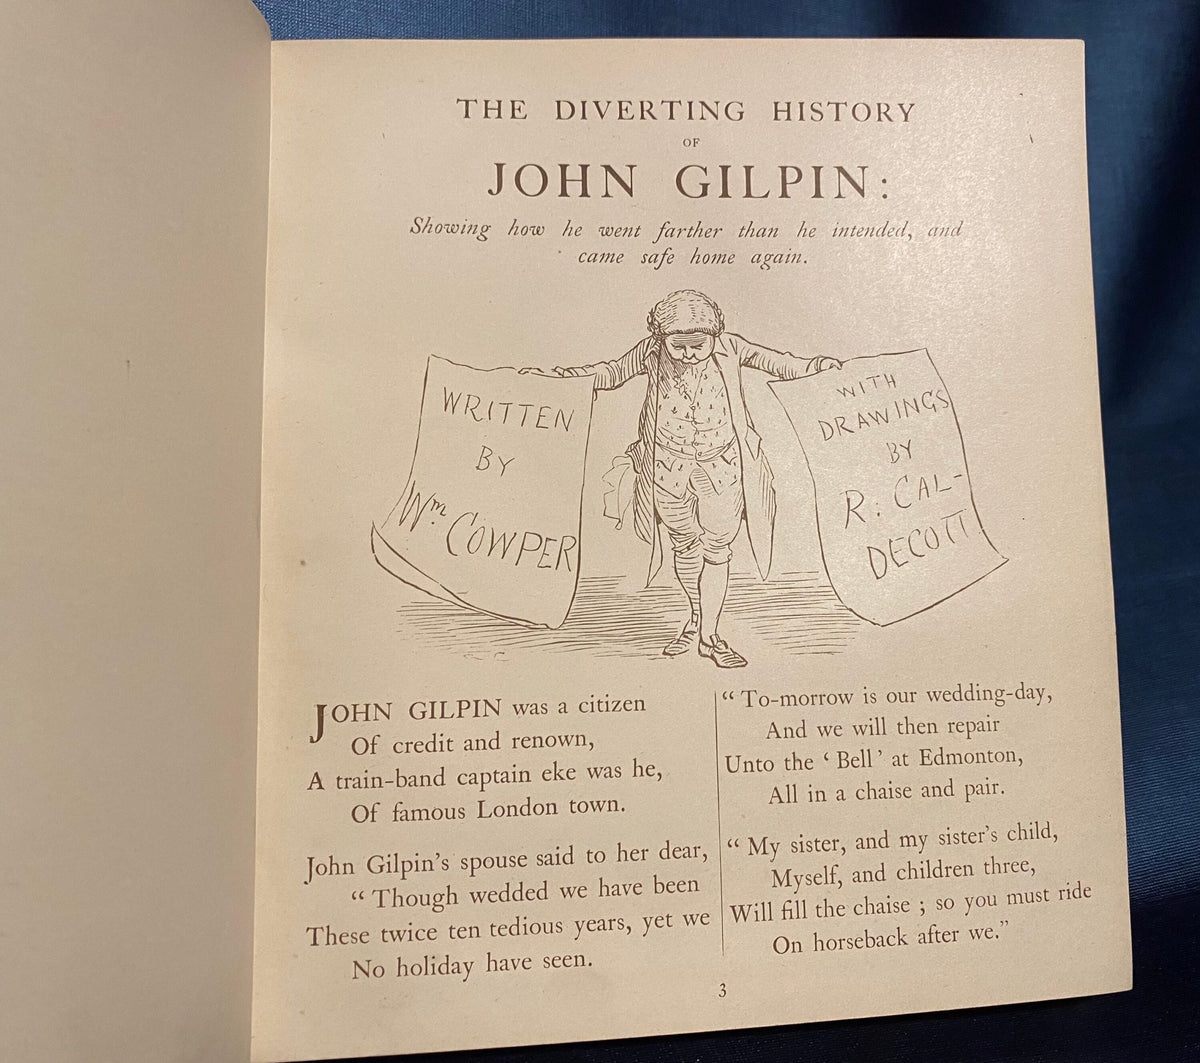 THE DIVERTING HISTORY
OF
JOHN GILPIN:
Showing how he went farther than he intended, and
came safe home again.
WRITTEN
BY
Wm COWPER
WITH
DRAWINGS
BY
R. CAL-
DECOTT
JOHN GILPIN was a citizen
Of credit and renown,
A train-band captain eke was he,
Of famous London town.
John Gilpin's spouse said to her dear,
“ Though wedded we have been
These twice ten tedious years, yet we
No holiday have seen.
“ To-morrow is our wedding-day,
And we will then repair
Unto the ‘ Bell ’ at Edmonton,
All in a chaise and pair.
“ My sister, and my sister's child,
Myself, and children three,
Will fill the chaise ; so you must ride
On horseback after we.”
3